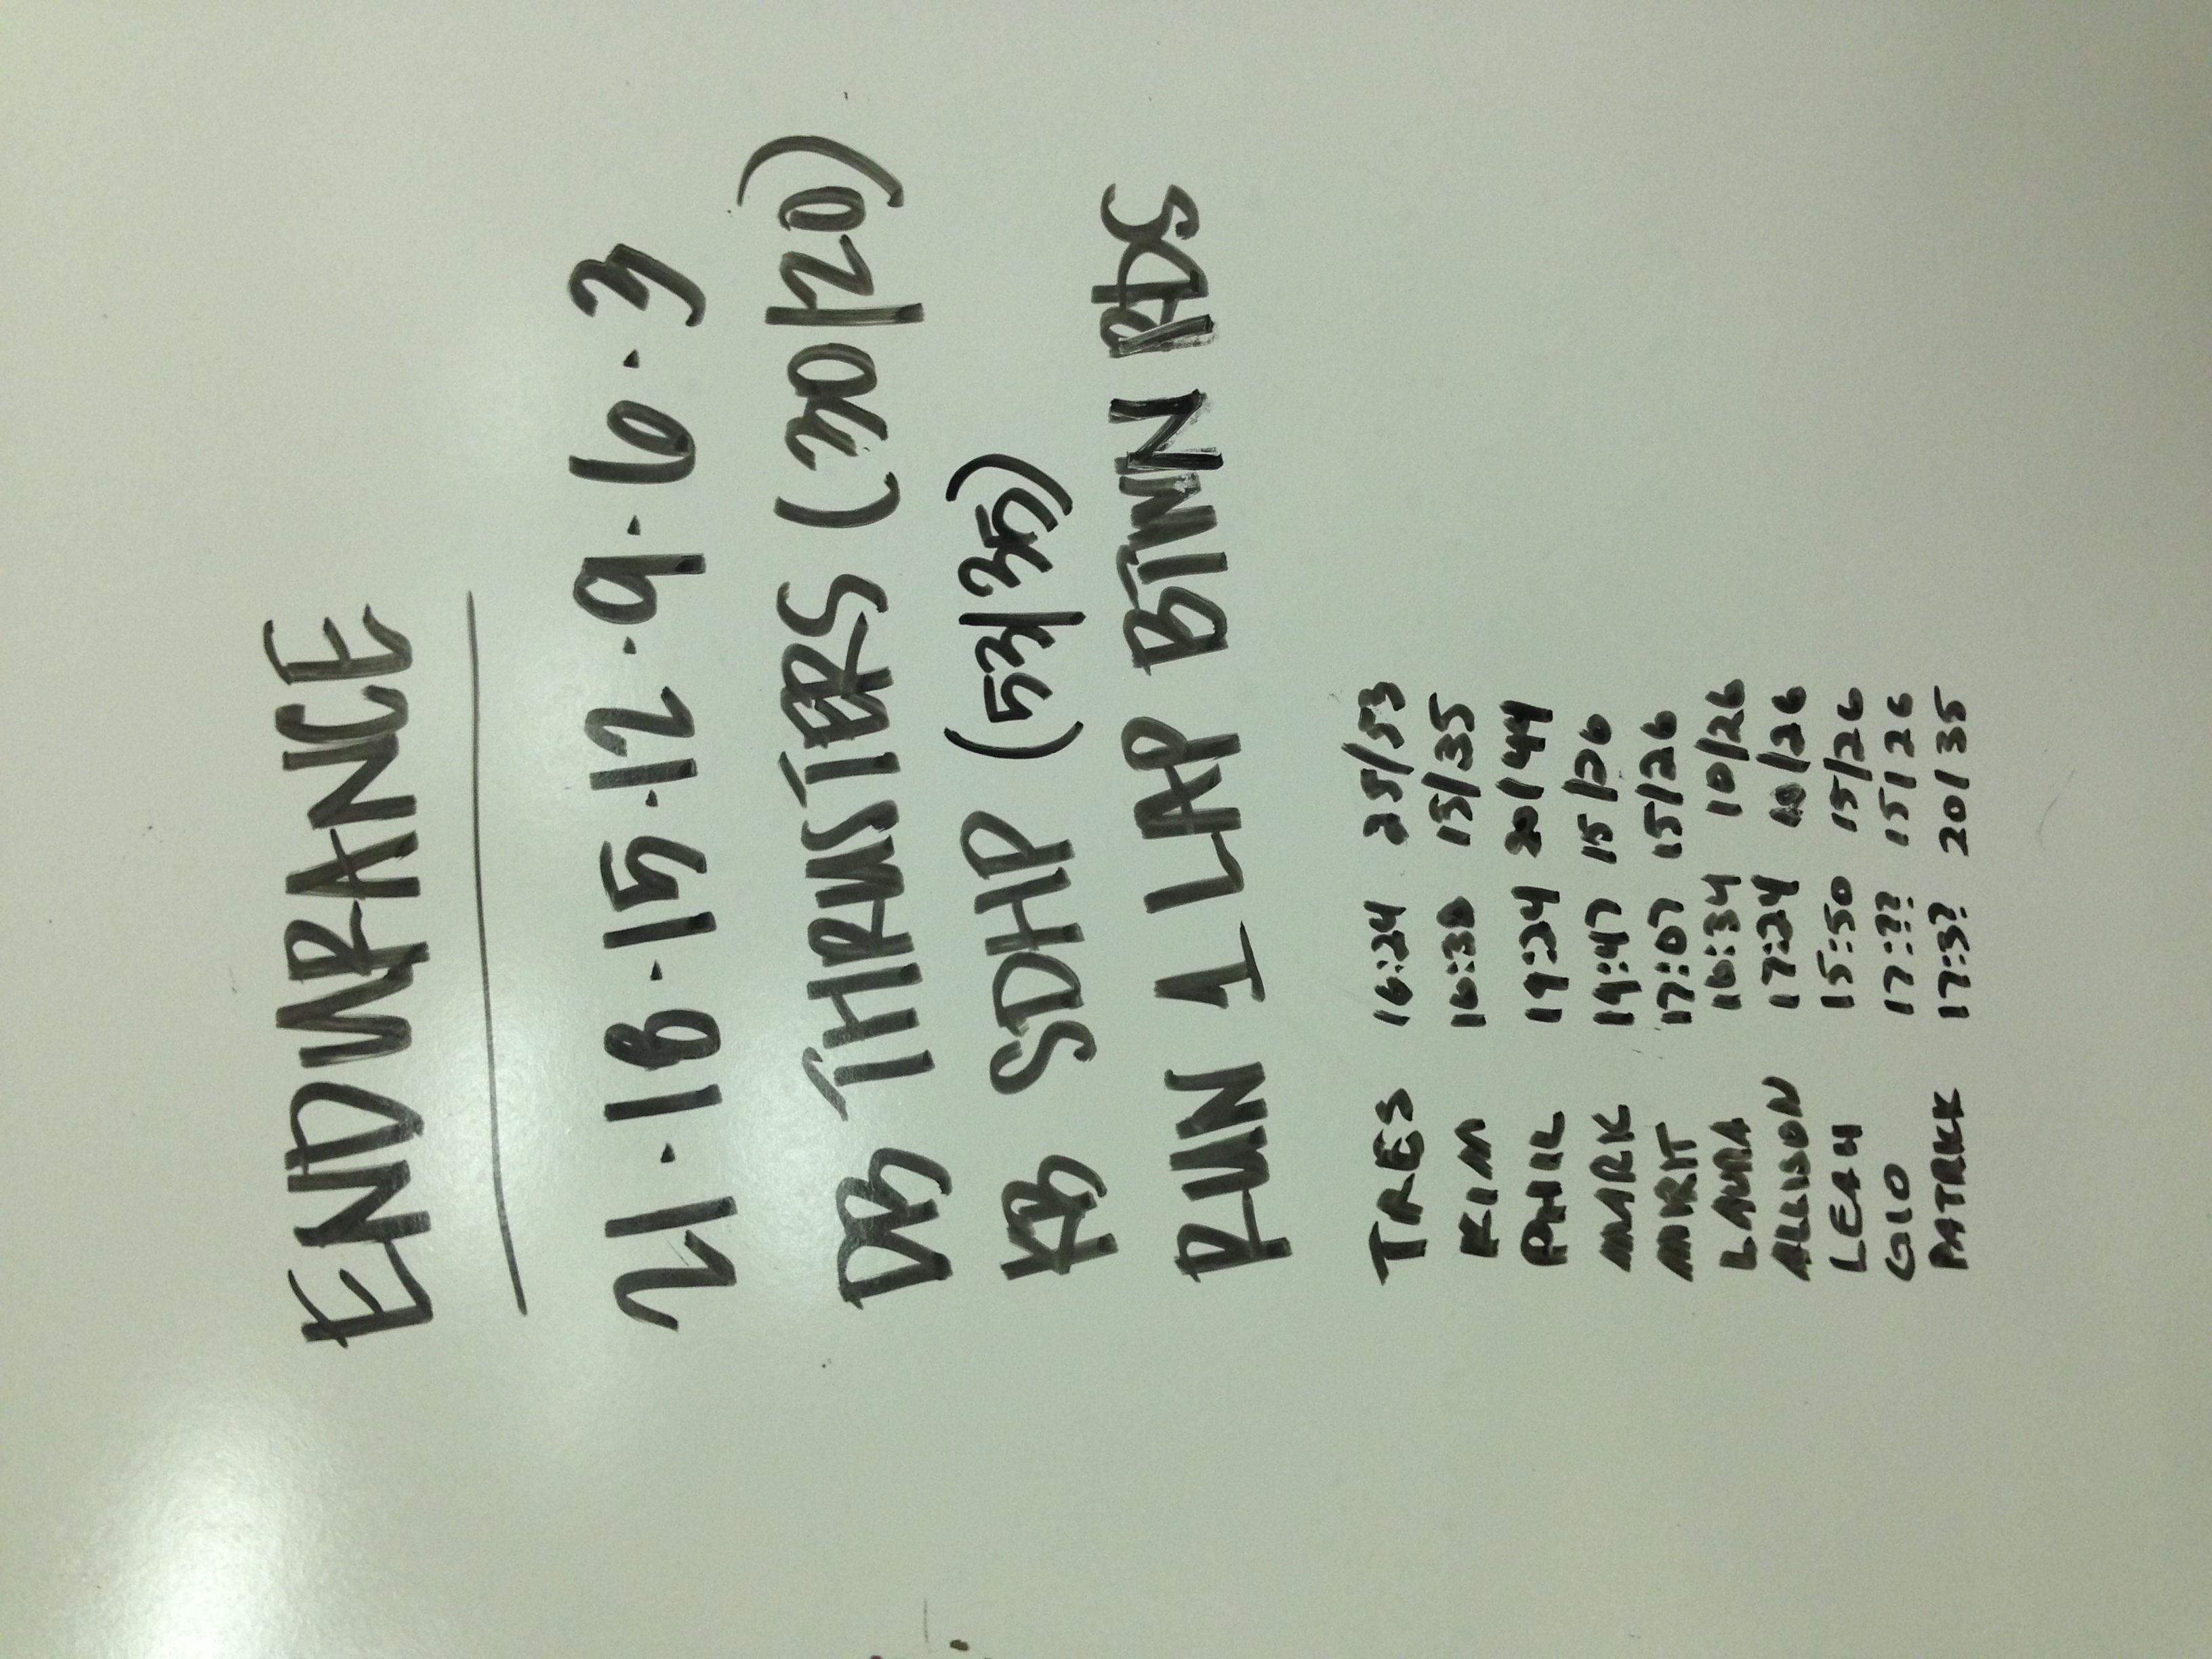 ENDURANCE
21·18·15·12·9·6·3
DB THRUSTERS (30/20)
KB SDHP (53/35)
RUN 1 LAP BTWN RDS
TRES 16:24 25/53
KIM 16:38 15/35
PHIL 19:24 20/44
MARK 19:47 15/26
17:07 15/26
LAURA 16:34 10/26
ALLISON 17:24 10/26
LEAH 15:50 15/26
GIO 17:?? 15/26
PATRICK 17:3? 20/35